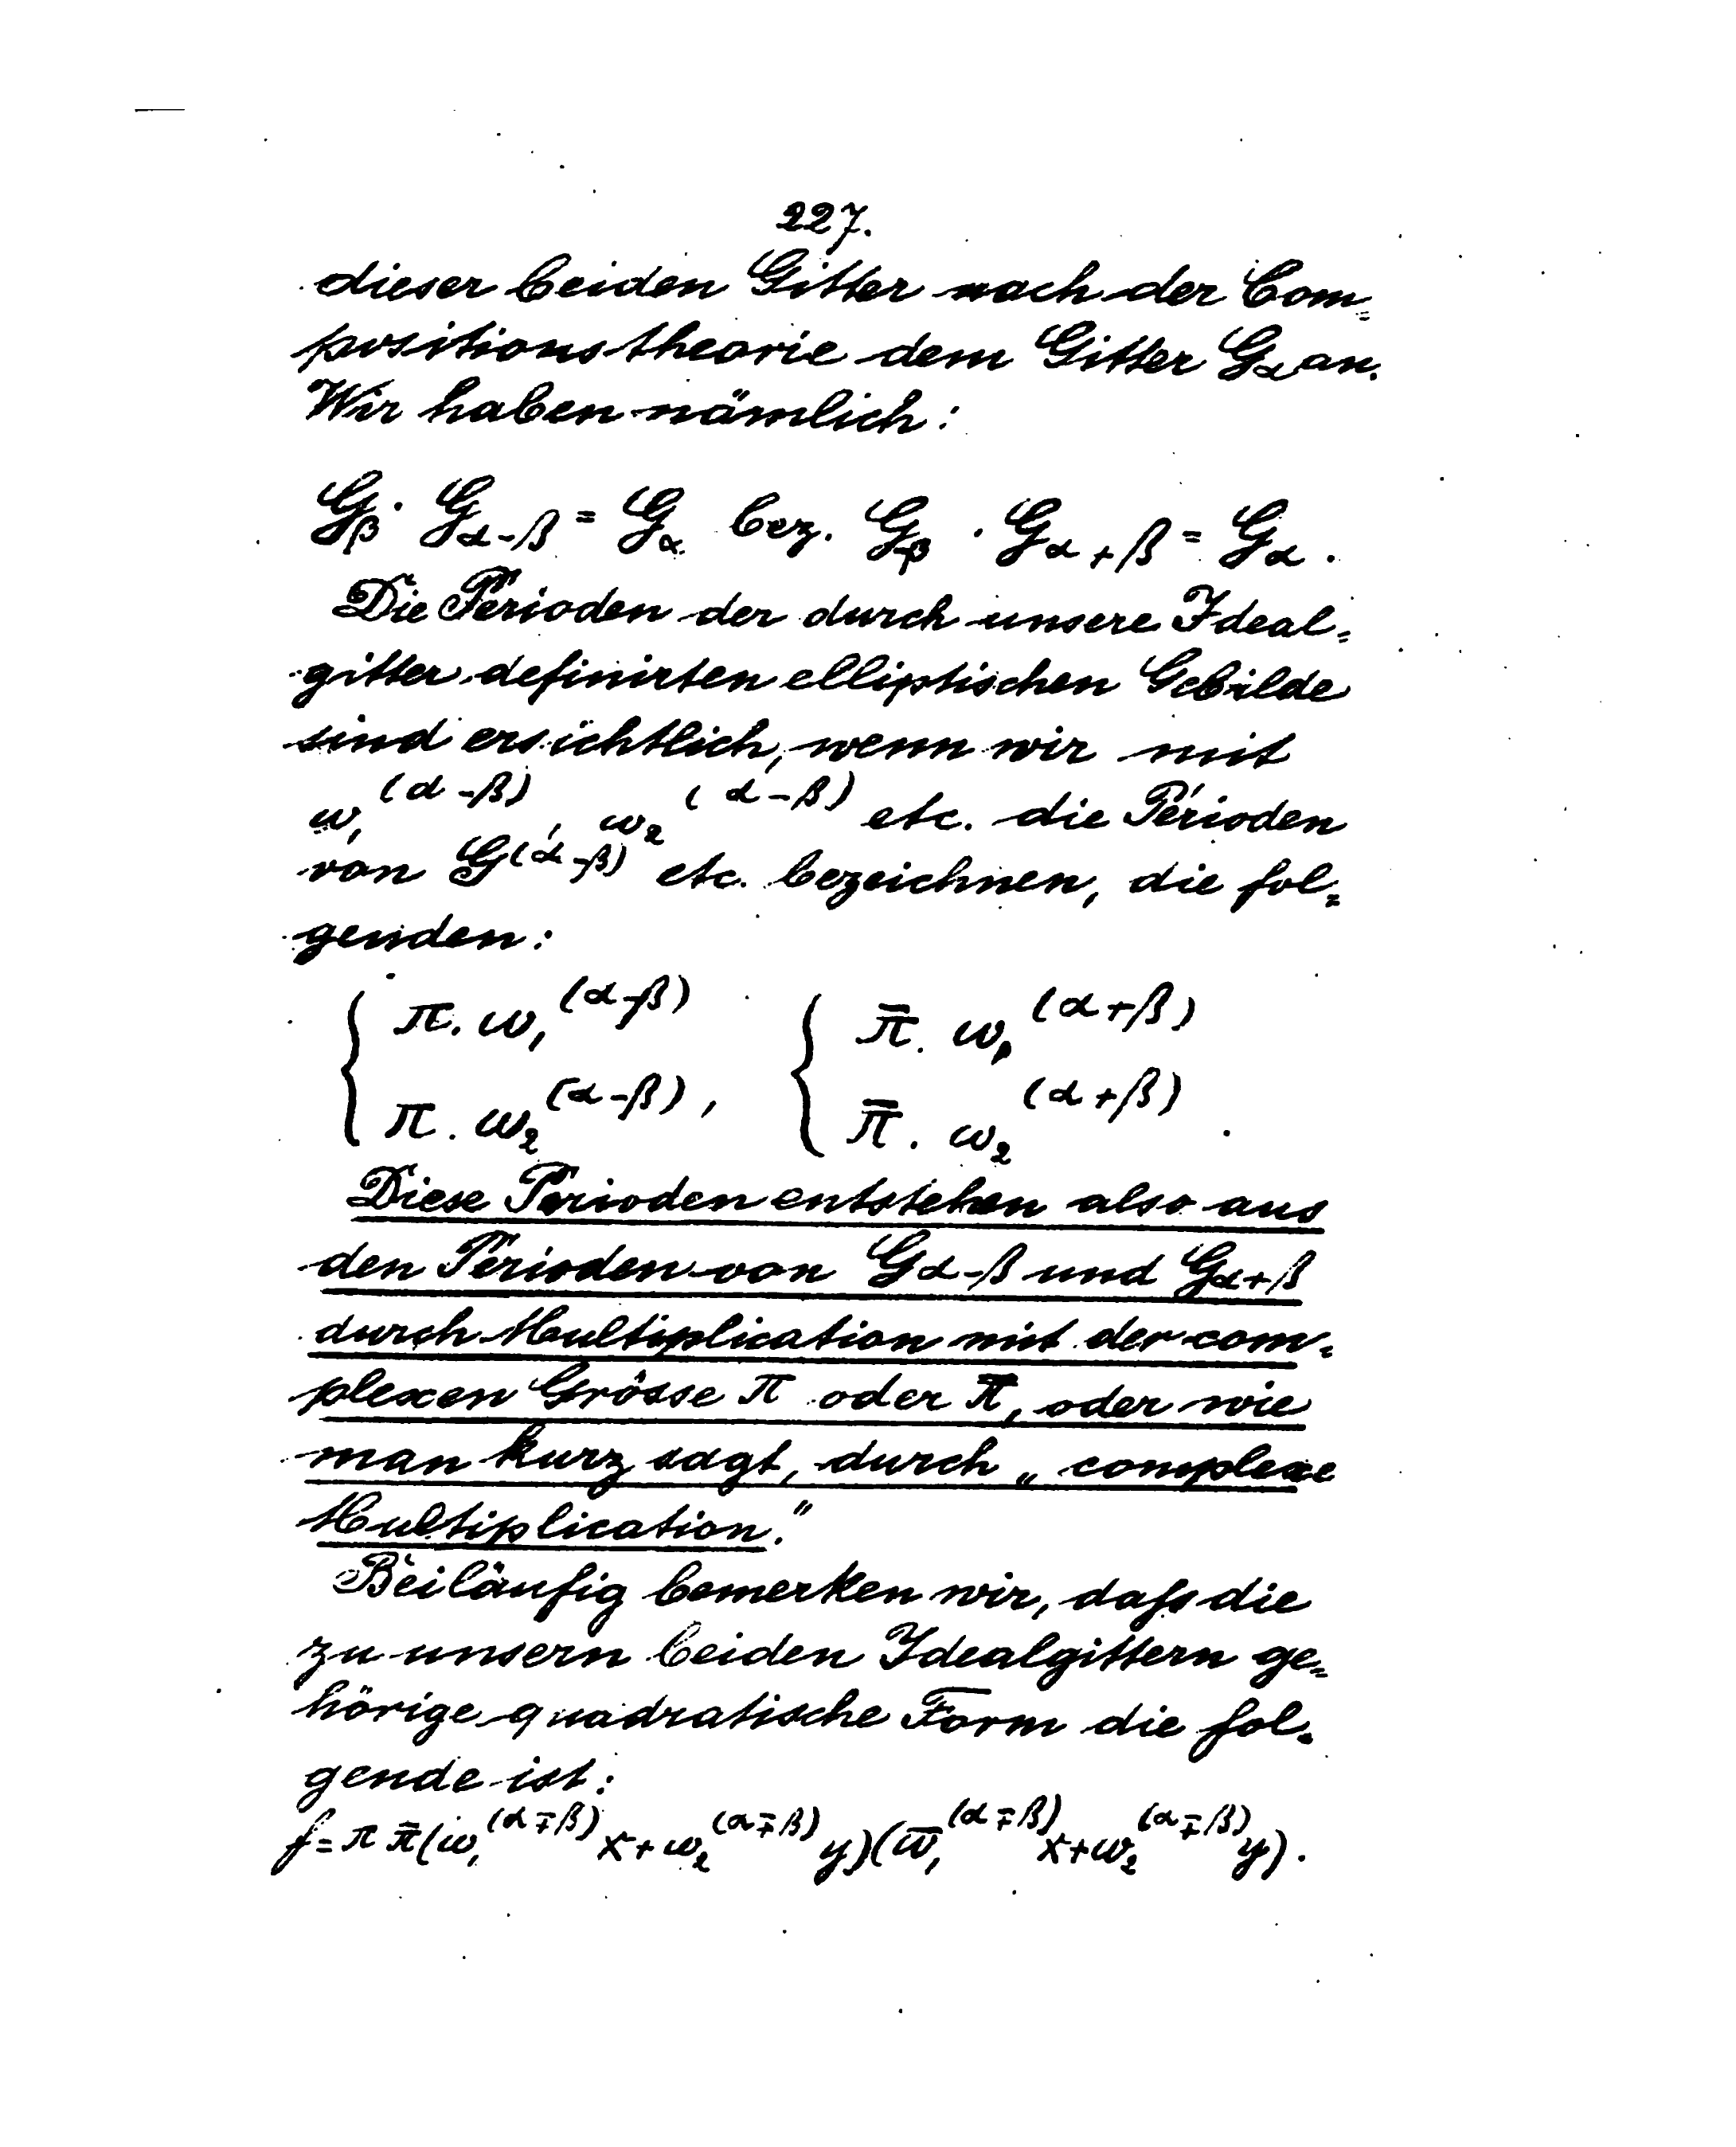 227.
dieser beiden Gitter nach der Com=
positionstheorie dem Gitter G_α an.
Wir haben nämlich:
G_β · G_{α-β} = G_α bez. G_{-β} · G_{α+β} = G_α.
Die Perioden der durch unsere Ideal=
gitter definirten elliptischen Gebilde
sind ersichtlich, wenn wir mit
ω_1^{(α-β)}, ω_2^{(α-β)} etc. die Perioden
von G^{(α-β)} etc. bezeichnen, die fol=
genden:
{ π. ω_1^{(α-β)} { π̄. ω_1^{(α+β)}
π. ω_2^{(α-β)}, π̄. ω_2^{(α+β)}.
Diese Perioden entstehen also aus
den Perioden von G_{α-β} und G_{α+β}
durch Multiplication mit der com=
plexen Grösse π oder π̄, oder wie
man kurz sagt, durch „complexe
Multiplication."
Beiläufig bemerken wir, dafs die
zu unsern beiden Idealgittern ge=
hörige quadratische Form die fol=
gende ist:
f = π π̄ (ω_1^{(α∓β)} x + ω_2^{(α∓β)} y)(ω̄_1^{(α∓β)} x + ω_2^{(α∓β)} y).